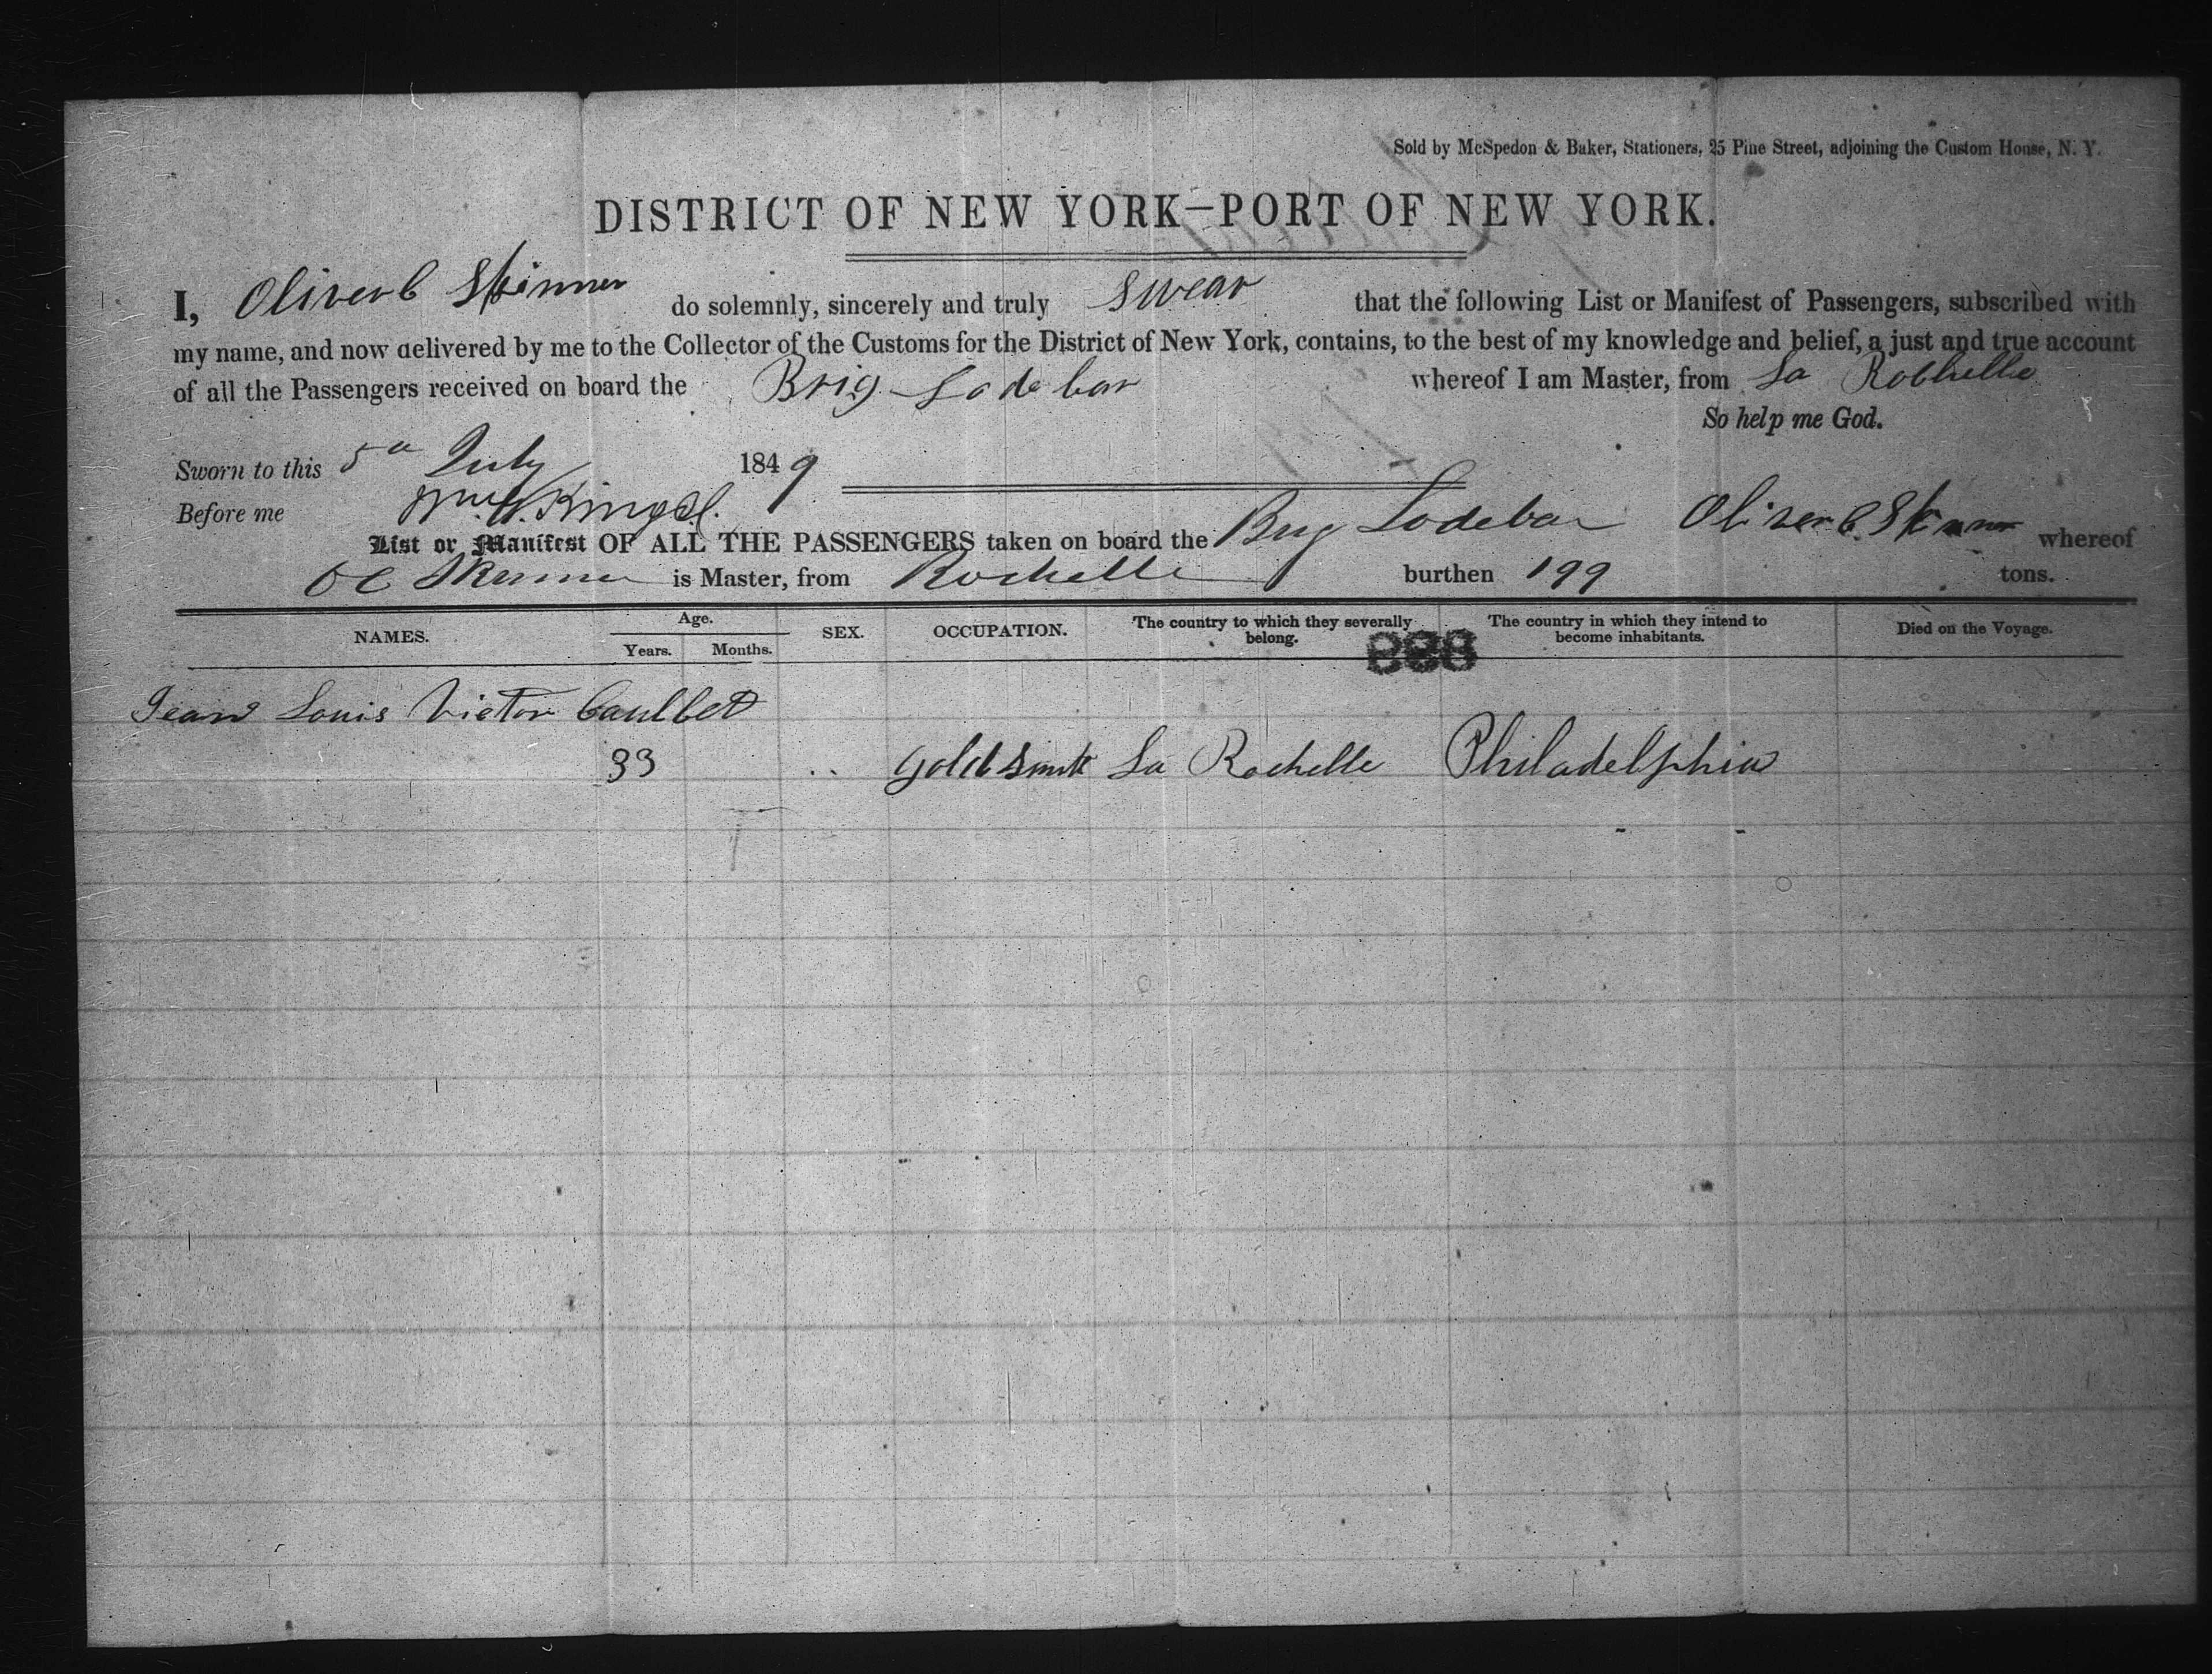 Sold by McSpedon & Baker, Stationers, 25 Pine Street, adjoining the Custom House, N. Y.
DISTRICT OF NEW YORK—PORT OF NEW YORK.
I, Oliver C Skinner do solemnly, sincerely and truly swear that the following List or Manifest of Passengers, subscribed with
my name, and now delivered by me to the Collector of the Customs for the District of New York, contains, to the best of my knowledge and belief, a just and true account
of all the Passengers received on board the Brig Lodebar whereof I am Master, from La Rochelle
So help me God.
Sworn to this 5th July 1849
Before me
List or Manifest OF ALL THE PASSENGERS taken on board the Brig Lodebar Oliver C. Skinner whereof
O C Skinner is Master, from Rochelle burthen 199 tons.
NAMES. Age. Years. Months. SEX. OCCUPATION. The country to which they severally belong. The country in which they intend to become inhabitants. Died on the Voyage.
888
Jean Louis Victor
33 Goldsmith La Rochelle Philadelphia